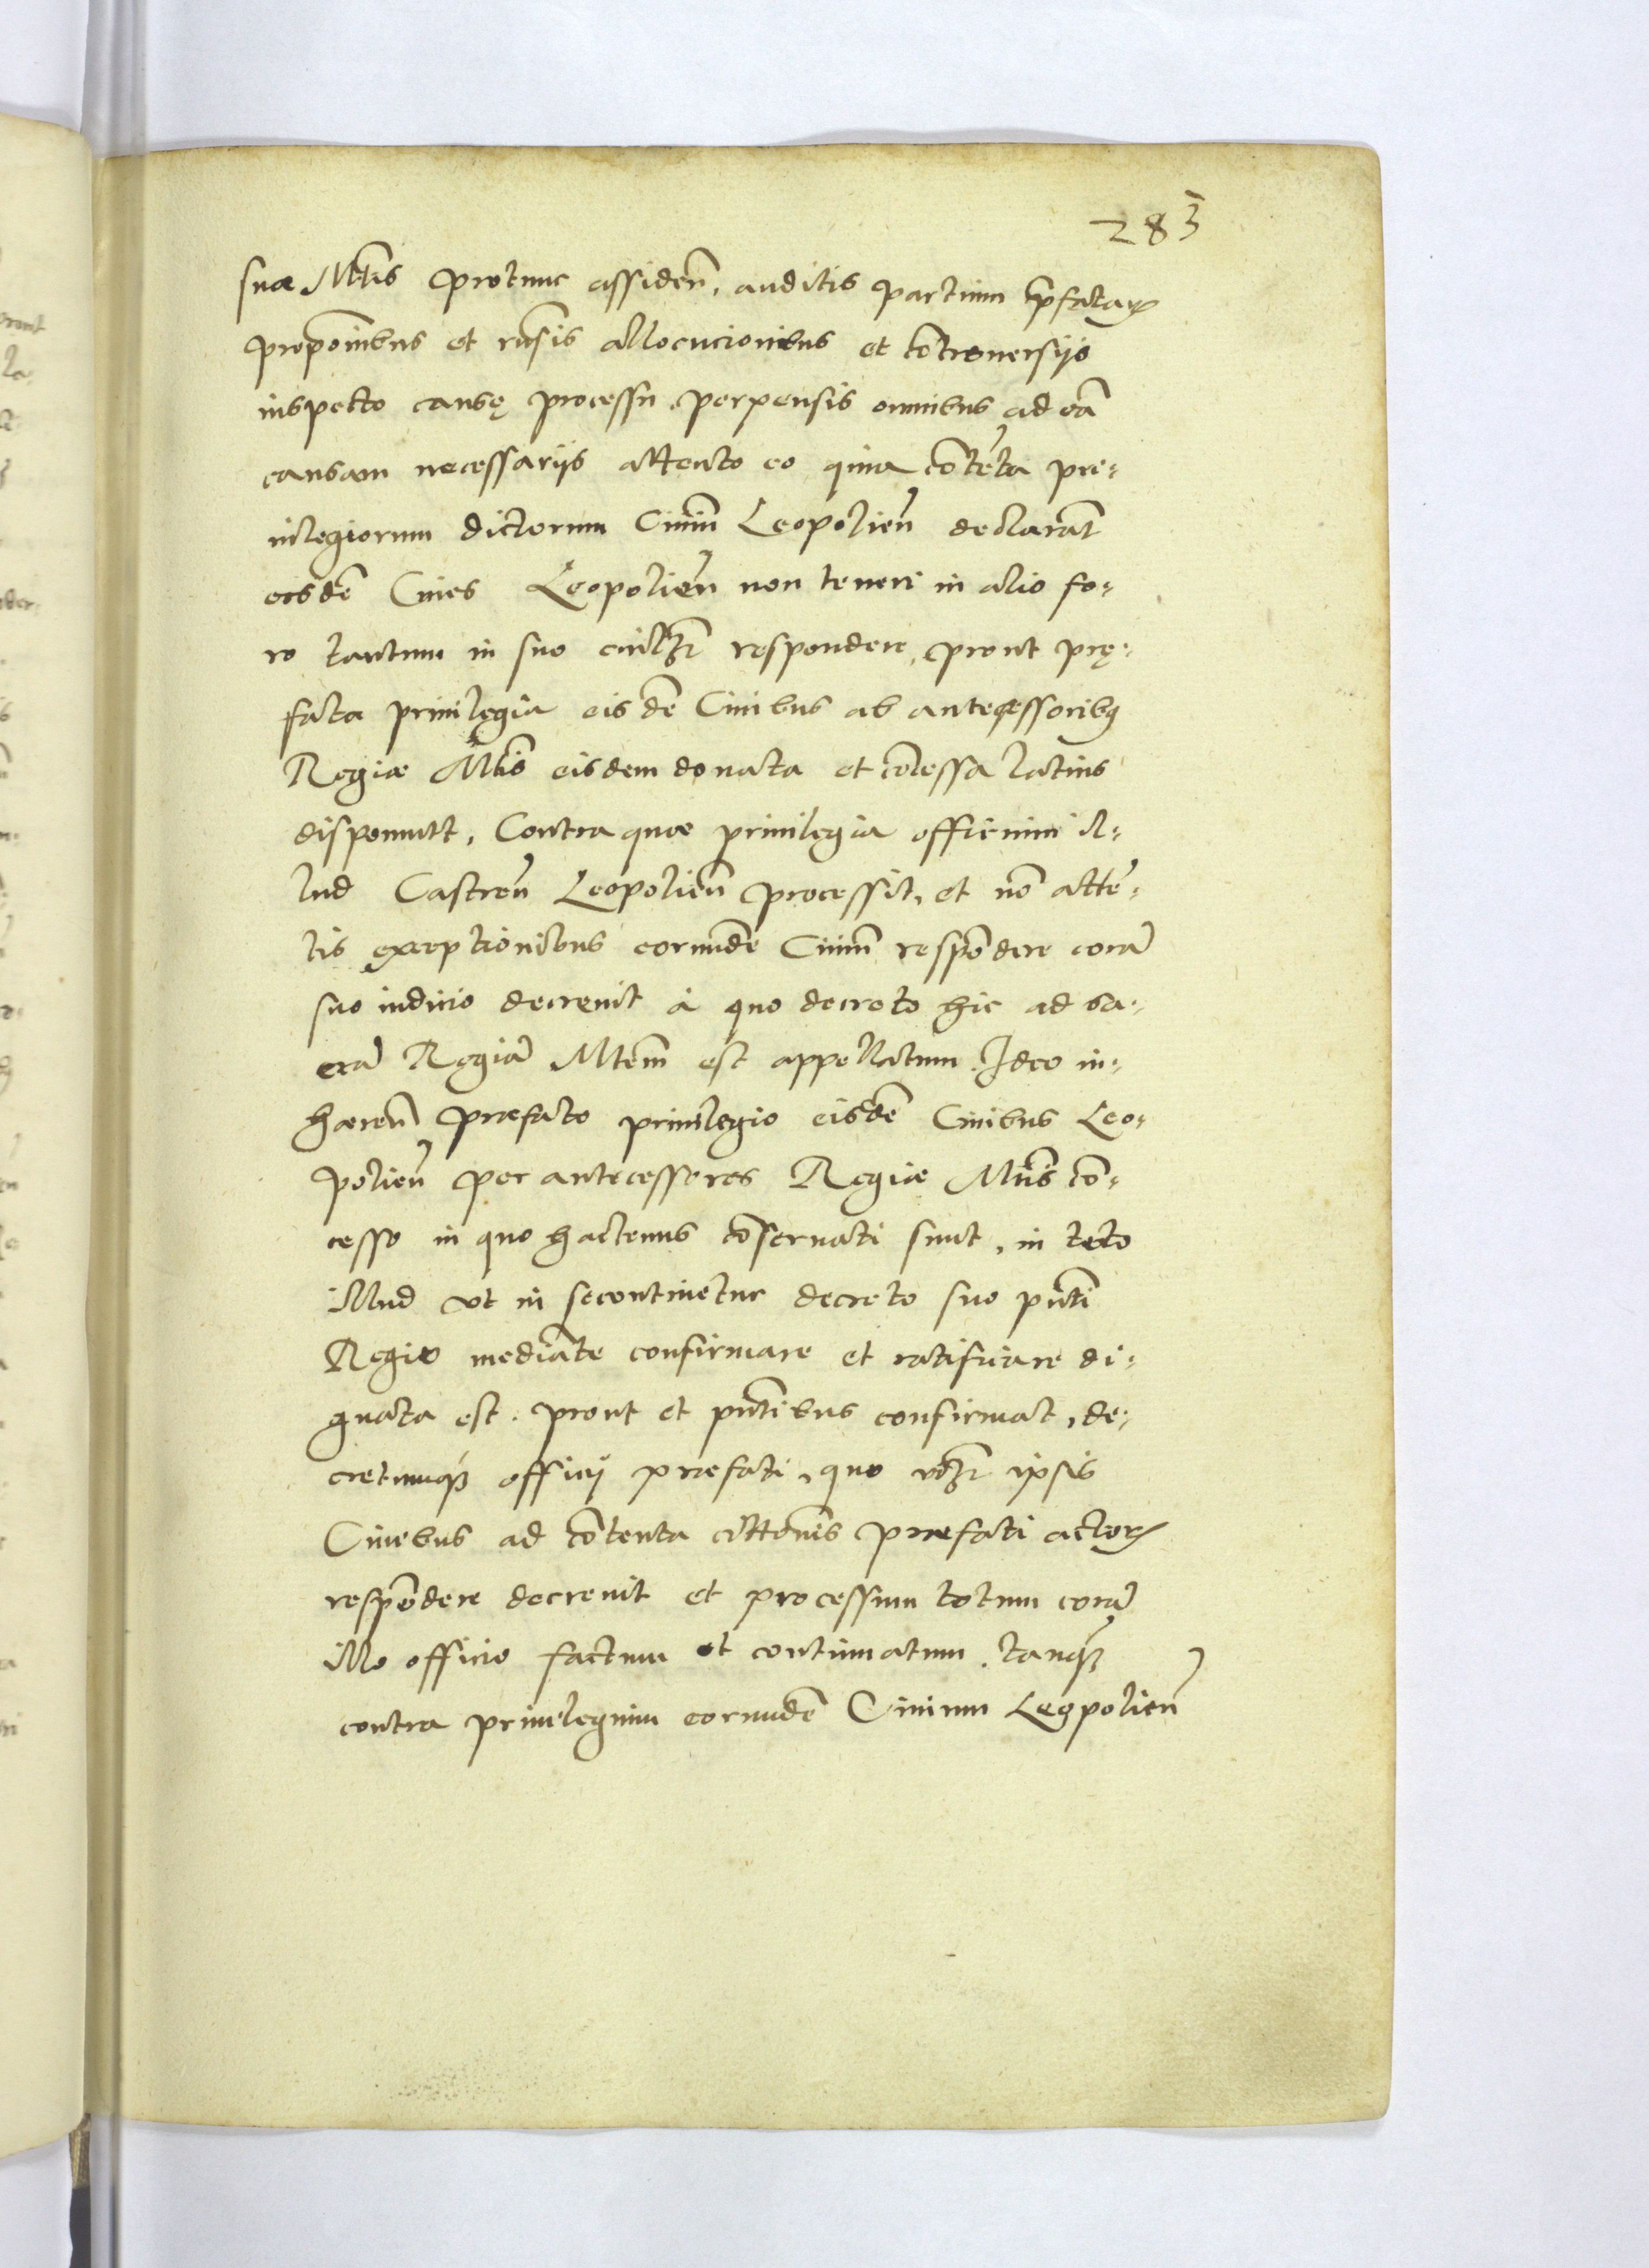 283
suæ Mttis protunc assiden̄. auditis partium p̄fataꝝ
propōnibus et rn̄sis allocucionibus et cōtrouersijs
inspecto causę processu. perpensis omnibus ad eā
causam necessarijs attento eo quia cōtēta pri=
uilegiorum dictorum Ciuiū Leopolien̄ declarāt
eosdē Ciues Leopolien̄ non teneri in alio fo=
ro tantum in suo ciuili respondere, prout prę=
fata priuilegia eisdē Ciuibus ab antecessoribꝯ
Regiæ Mttis eisdem donata et cōcessa latius
disponunt. Contra quæ priuilegia officium il=
lud Castren̄ Leopolien̄ processit, et nō attē=
tis exceptionibus eorundē Ciuiū respōdere corā
suo iudicio decreuit à quo decreto hic ad sa=
crā Regiā Mttem est appellatum. Ideo in=
hæren̄ præfato priuilegio eisdē Ciuibus Leo=
polien̄ per antecessores Regiæ Mttis cō=
cesso in quo hactenus cōseruati sunt, in toto
illud vt in se continetur decreto suo pn̄ti
Regio mediāte confirmare et ratificare di=
gnata est. prout et pn̄tibus confirmat, de=
cretumqꝫ officij præfati, quo ipsis
Ciuibus ad cōtenta cittōnis præfati actoꝝ
respōdere decreuit et processum totum corā
illo officio factum et continuatum. tanqꝫ
contra priuilegium eorundē Ciuium Leopolien̄